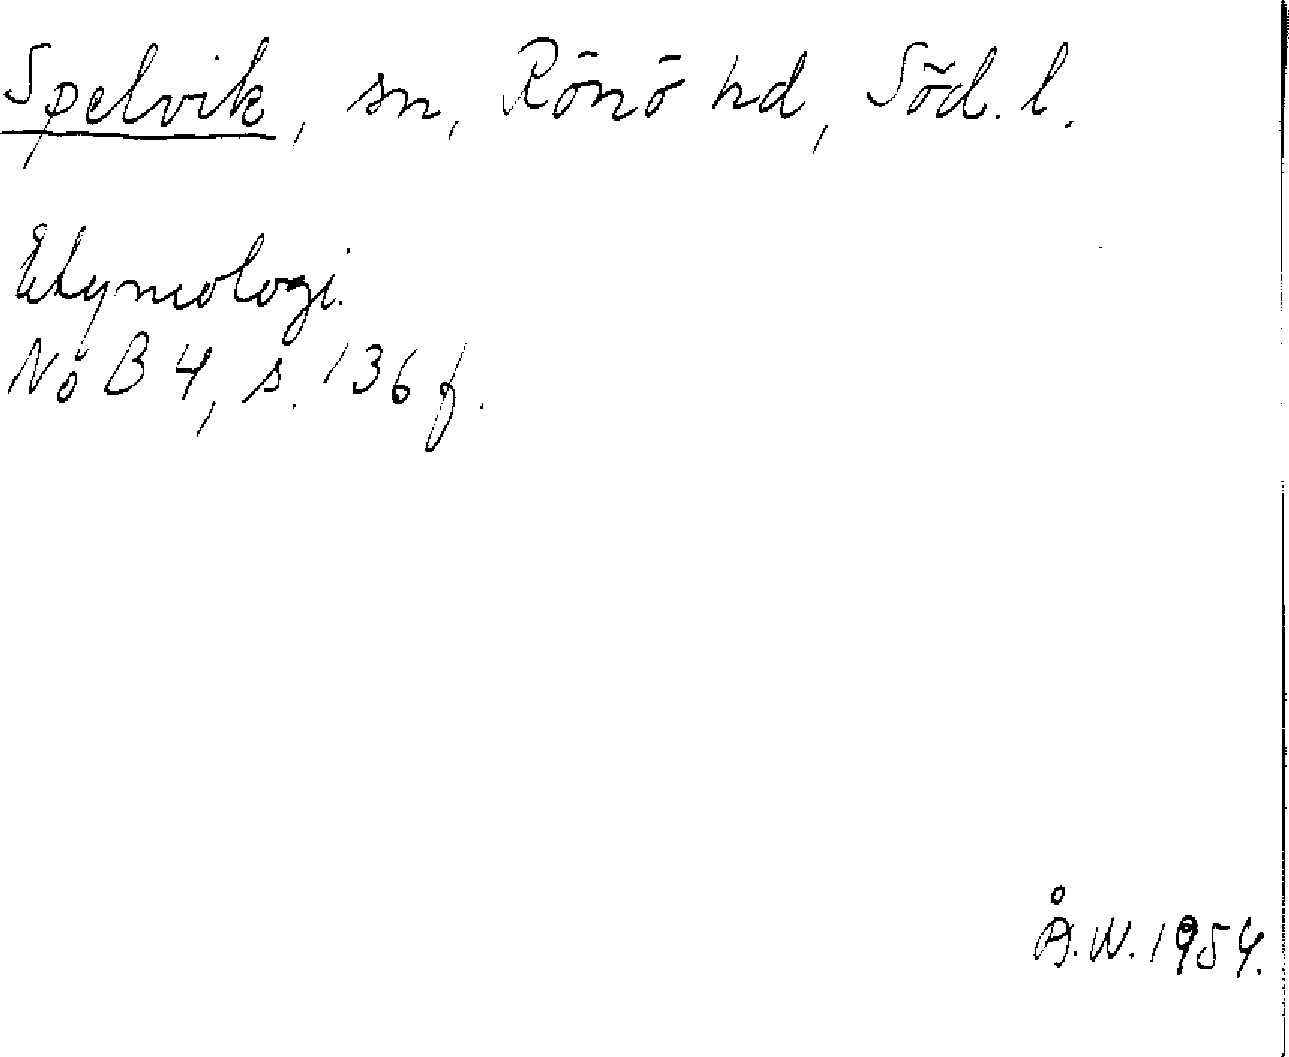 Spelvik, sn, Rönö hd, Söd. l.
Etymologi.
NoB 4, s. 136 f.
Å.W. 1954.